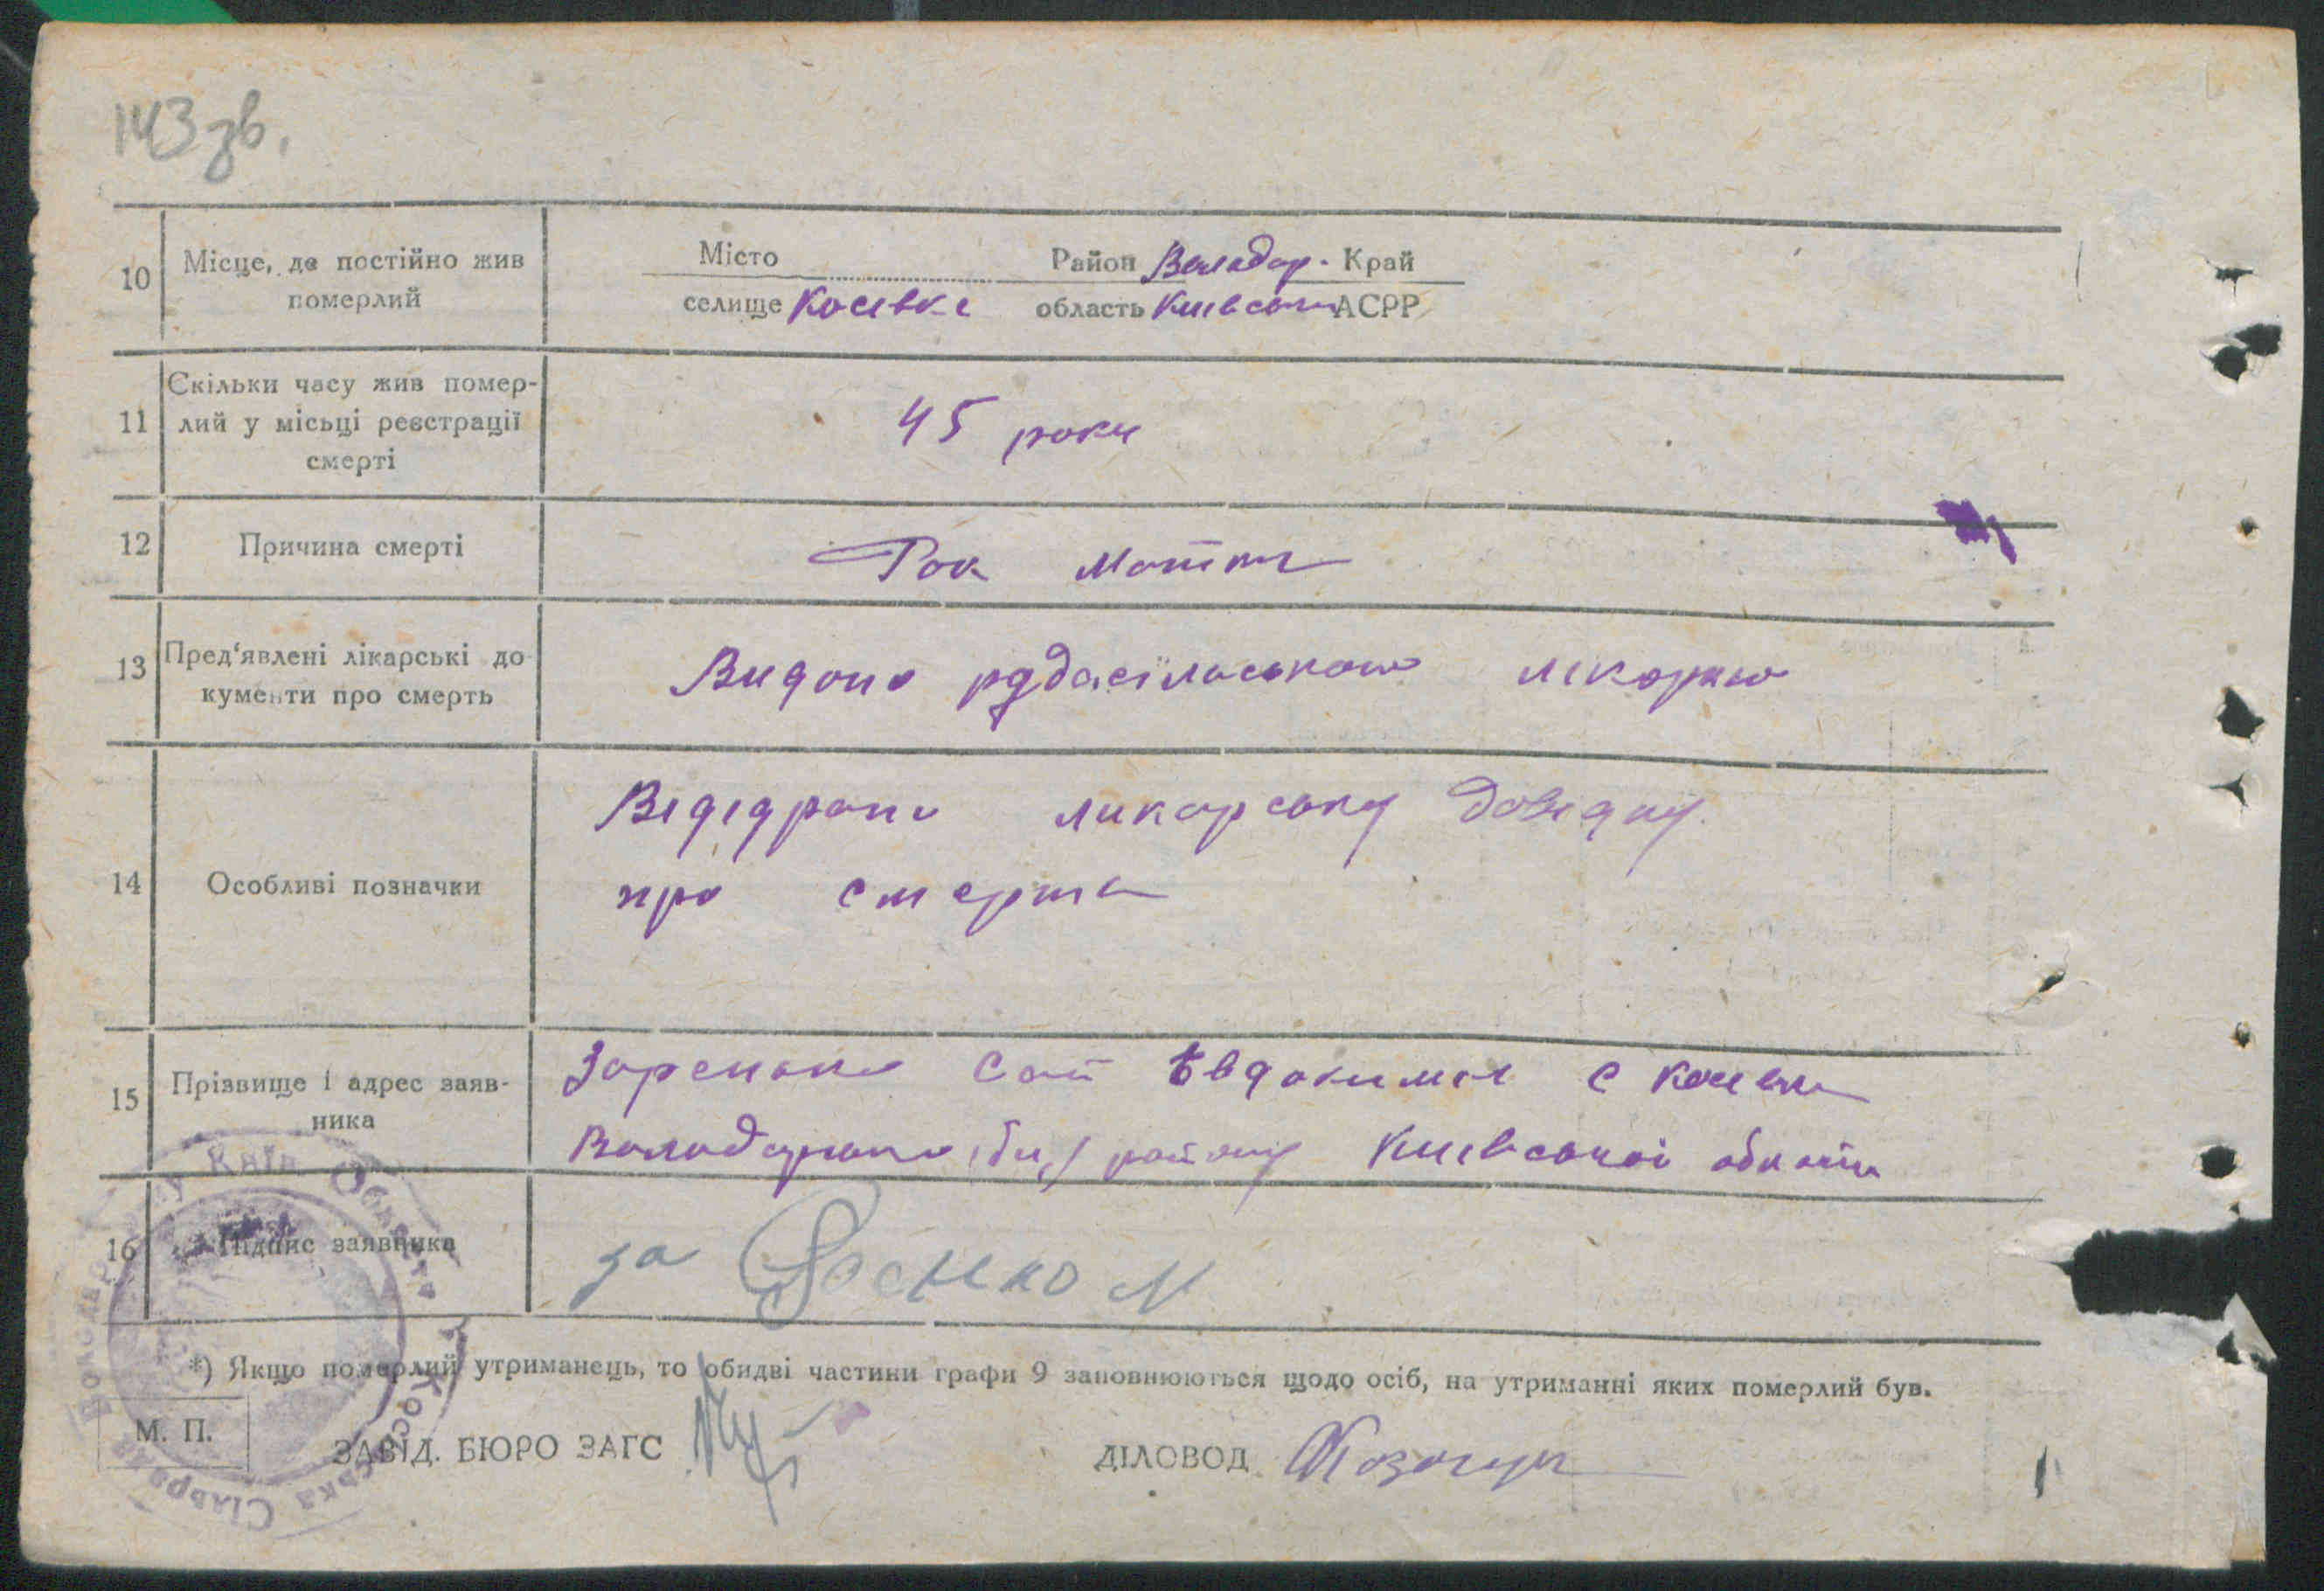 143 зв.
10 Місце, де постійно жив померлий
Місто Район Володар. Край
селище Косівке область Киівська АСРР
11 Скільки часу жив помер-
лий у місьці реєстрації
смерті
45 роки
12 Причина смерті
Рак матки
13 Пред'явлені лікарські до
кументи про смерть
Видано лікарью
14 Особливі позначки
Відідрано ликарську довідку.
про смерть
15 Прізвище і адрес заяв-
ника
Євдокимов с Косівки
району Киівськоі області
16 Підпис заявника
за
*) Якщо померлий утриманець, то обидві частини графи 9 заповнюються щодо осіб, на утриманні яких померлий був.
М. П.
ЗАВІД. БЮРО ЗАГС
ДІЛОВОД